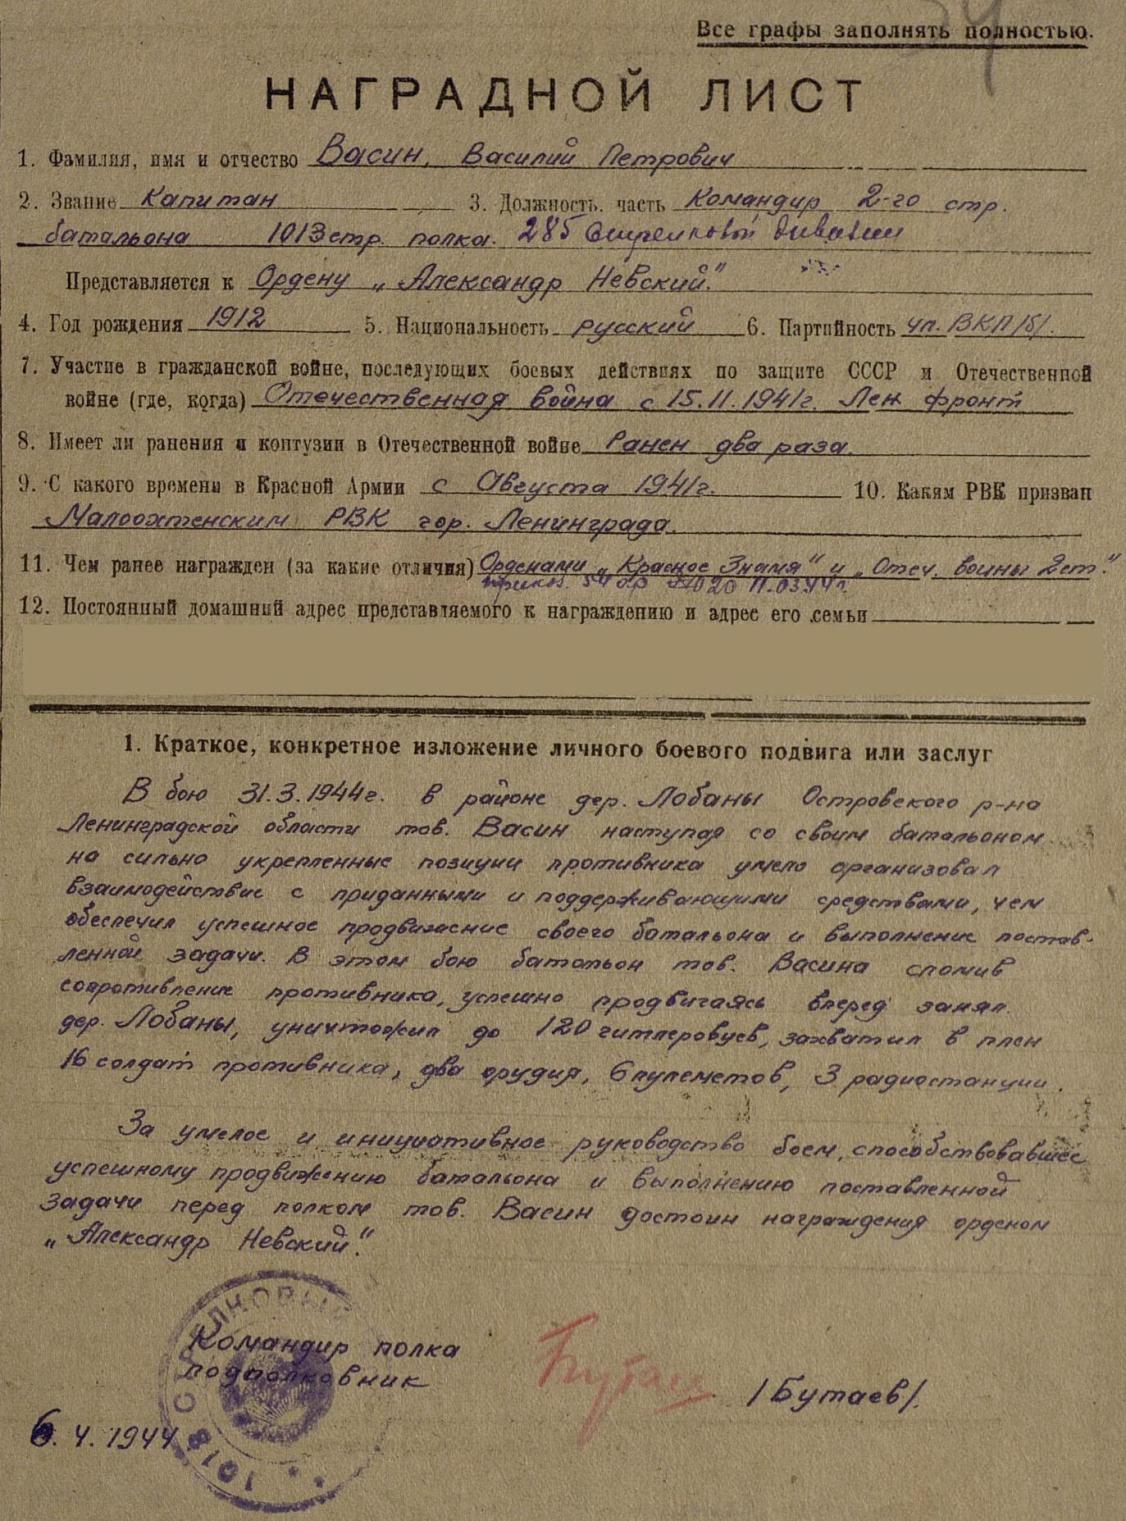 Все графы заполнять полностью.
НАГРАДНОЙ ЛИСТ
1. Фамилия, имя и отчество Васин, Василий Петрович
2. Звание Капитан 3. Должность, часть Командир 2-го стр.
батальона 1013 стр. полка. 285 Стрелковой дивизии
Представляется к Ордену „Александр Невский."
4. Год рождения 1912 5. Национальность русский 6. Партийность чл. ВКП/б/.
7. Участие в гражданской войне, последующих боевых действиях по защите СССР и Отечественной
войне (где, когда) Отечественная война с 15.11.1941г. Лен фронт
8. Имеет ли ранения и контузии в Отечественной войне Ранен два раза.
9. С какого времени в Красной Армии с Августа 1941г. 10. Каким РВК призван
Малоохтенским РВК гор. Ленинграда.
11. Чем ранее награжден (за какие отличия) Орденами „Красное Знамя" и „Отеч. войны 2 ст."
11.03.44г.
12. Постоянный домашний адрес представляемого к награждению и адрес его семьи
1. Краткое, конкретное изложение личного боевого подвига или заслуг
В бою 31.3.1944г. в районе дер. Лобаны Островского р-на
Ленинградской области тов. Васин наступая со своим батальоном
на сильно укрепленные позиции противника умело организовал
взаимодействие с приданными и поддерживающими средствами, чем
обеспечил успешное продвижение своего батальона и выполнение постав-
ленной задачи. В этом бою батальон тов. Васина сломив
сопротивление противника, успешно продвигаясь вперед занял
дер. Лобаны, уничтожил до 120 гитлеровцев, захватил в плен
16 солдат противника, два орудия, 6 пулеметов, 3 радиостанции.
За умелое и инициативное руководство боем, способствовавшее
успешному продвижению батальона и выполнению поставленной
задачи перед полком тов. Васин достоин награждения орденом
„Александр Невский".
Командир полка
подполковник
Бутаев
/Бутаев/.
6. 4. 1944
1013 СТРЕЛКОВЫЙ